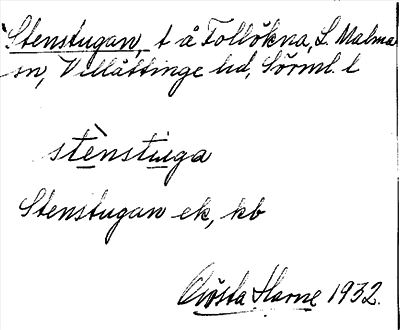 Stenstugan, t å Follökna, L. Malma
sn, Villåttinge hd, Sörml. l
stènstuga
Stenstugan ek, kb
Gösta Harne 1932.